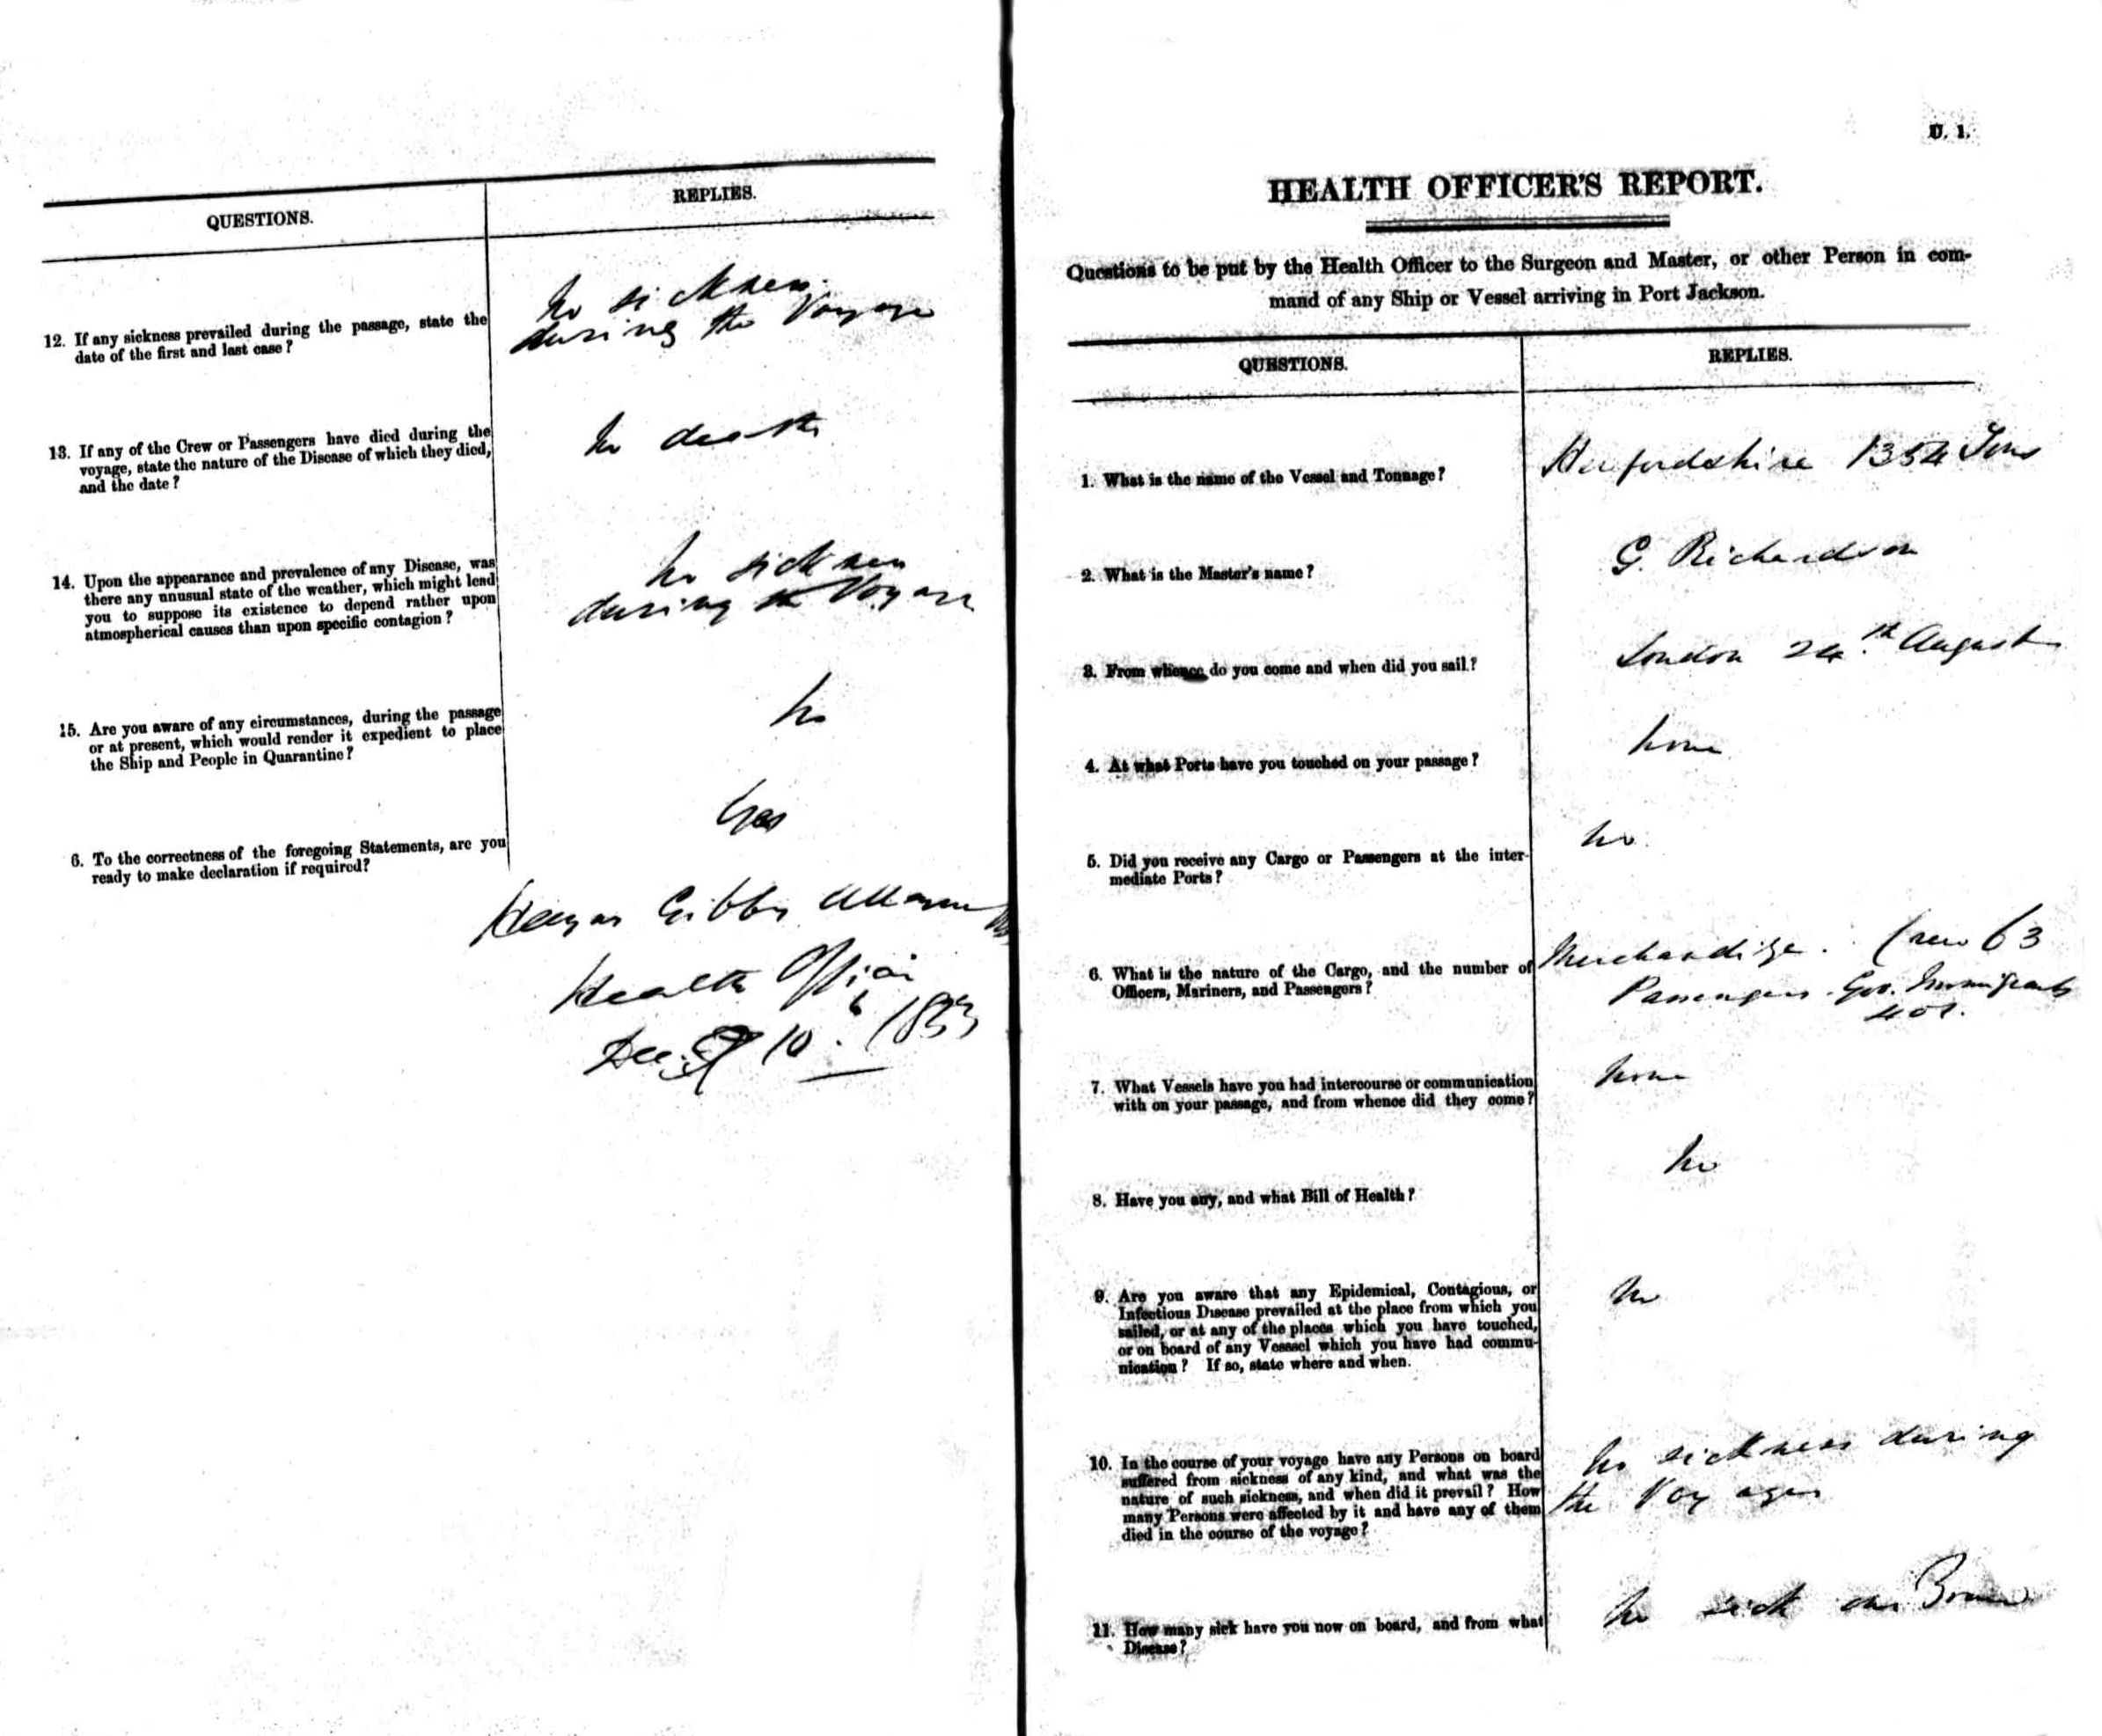 QUESTIONS.
REPLIES.
12. If any sickness prevailed during the passage, state the
date of the first and last case?
No sickness
during the Voyage
13. If any of the Crew or Passengers have died during the
voyage, state the nature of the Disease of which they died,
and the date?
No death
14. Upon the appearance and prevalence of any Disease, was
there any unusual state of the weather, which might lead
you to suppose its existence to depend rather upon
atmospherical causes than upon specific contagion?
No sickness
during the Voyage
15. Are you aware of any circumstances, during the passage
or at present, which would render it expedient to place
the Ship and People in Quarantine?
No
6. To the correctness of the foregoing Statements, are you
ready to make declaration if required?
Yes
Haynes Gibbes Alleyne
Health Officer
Dec. 10th 1853
U. 1.
HEALTH OFFICER'S REPORT.
Questions to be put by the Health Officer to the Surgeon and Master, or other Person in com-
mand of any Ship or Vessel arriving in Port Jackson.
QUESTIONS.
REPLIES.
1. What is the name of the Vessel and Tonnage?
Herfordshire 1354 Tons
2. What is the Master's name?
G. Richardson
3. From whence do you come and when did you sail?
London 24th August
4. At what Ports have you touched on your passage?
None
5. Did you receive any Cargo or Passengers at the inter-
mediate Ports?
No
6. What is the nature of the Cargo, and the number of
Officers, Mariners, and Passengers?
Merchandize. Crew 63
Passengers. Gov. Immigrants
7. What Vessels have you had intercourse or communication
with on your passage, and from whence did they come?
None
8. Have you any, and what Bill of Health?
No
9. Are you aware that any Epidemical, Contagious, or
Infectious Disease prevailed at the place from which you
sailed, or at any of the places which you have touched,
or on board of any Vesssel which you have had commu-
nication? If so, state where and when.
No
10. In the course of your voyage have any Persons on board
suffered from sickness of any kind, and what was the
nature of such sickness, and when did it prevail? How
many Persons were affected by it and have any of them
died in the course of the voyage?
No sickness during
the Voyage
11. How many sick have you now on board, and from what
Disease?
No sick on Board